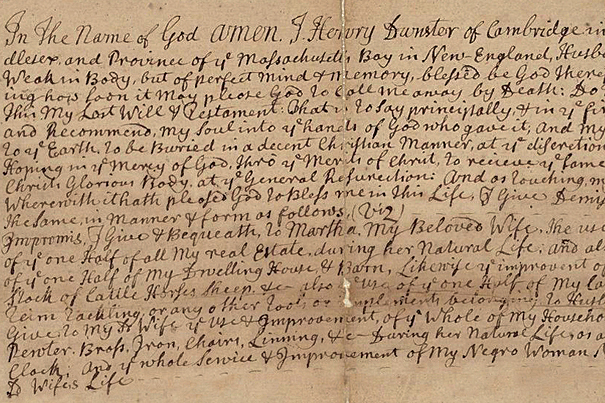 In The Name of God amen. I, Henry Dunster of Cambridge in
dlesex, and Province of yͤ Massachusets Bay in New-England, Husb
Weak in Body, but of perfect Mind & Memory, blessed be God there
ing how soon it may please God to Call me away by Death: Do
This My Last Will & Testament. That is to say principally, & in yͤ fir
and Recommend, My Soul into yͤ hands of God who gave it, and My
to yͤ Earth, to be Buried in a decent Christian Manner, at yͤ discretion
Hoping in yͤ Mercy of God, thrō yͤ Merits of Christ, to recieve yͤ same
Christs Glorious Body, at yͤ General Resurection: And as touching,
Wherewith it hath pleased God to Bless me in this Life, I Give Demis
the same, in Manner & form as follows, (Viz)
Impromis, I Give & Bequeath, to Martha, My Beloved Wife, the use
of yͤ one Half of all My real Estate, during her Natural Life: and als
of yͤ one Half of My Dwelling House, & Barn, Likewise yͤ improvemt of
Stock of Cattle Horses Sheep, &c also yͤ use of yͤ one Half of My
Teim Tackling, or any other Tools or Implements belonging to Husb
Give to My Sᵈ Wife yͤ use & Improvement, of yͤ Whole of My Househol
Pewter, Brass, Iron, Chairs, Linning, &c During her Natural Life, as a
Clock; And yͤ whole Service & Improvement of My Negro Woman
Sᵈ Wifes Life